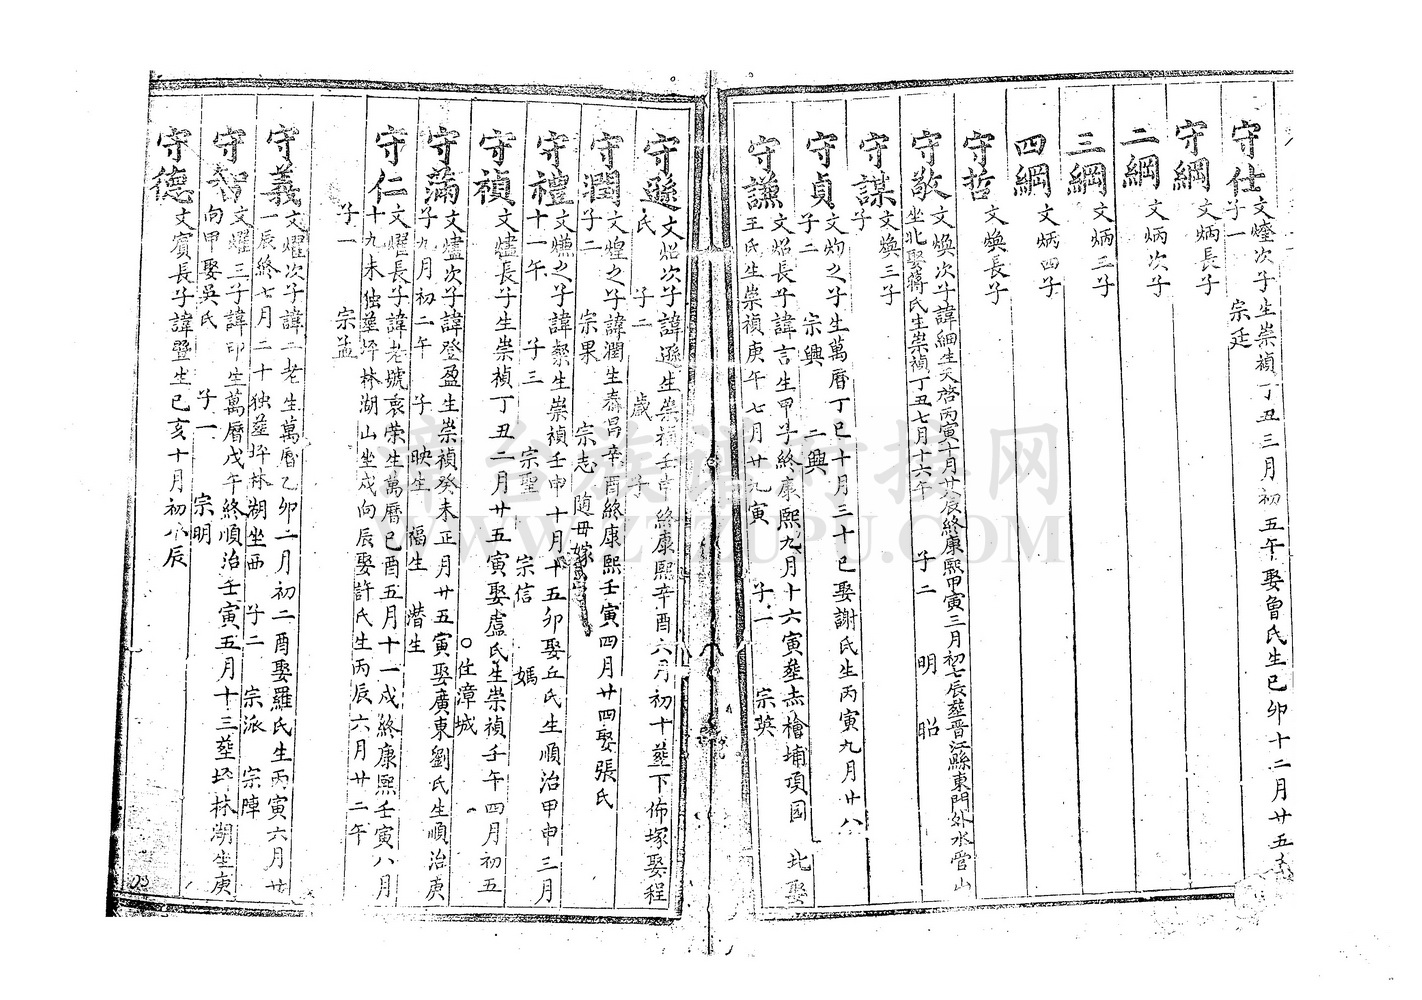 守仕
文燁次子生崇禎丁丑三月初五午娶曾氏生己卯十二月廿五
子一 宗廷
守綱
文炳長子
二綱
文炳次子
三綱
文炳三子
四綱
文炳四子
守哲
文煥長子
守敬
文煥次子諱細生天啓丙寅十月廿辰終康熙甲寅三月初七辰塟晋江縣東門外水雲山
坐北娶蔣氏生崇禎丁丑七月十六午 子二 明 昭
守謀
文煥三子
子
守貞
文灼之子生萬曆丁巳十月三十巳娶謝氏生丙寅九月廿八
子二 宗興 二興
守謙
文炤長子諱言生甲子終康熙九月十六寅塟赤檜埔頂园 北娶
王氏生崇禎庚午七月廿九寅 子一 宗英
守遜
文炤次子諱遜生崇禎壬申終康熙辛酉六月初十塟下佈塚娶程
氏 子二 歲 子
守潤
文煌之子諱潤生泰昌辛酉終康熙壬寅四月廿四娶張氏
子二 宗果 宗志 随母嫁
守禮
文熑之子諱粲生崇禎壬申十月十五卯娶丘氏生順治甲申三月
十一午 子三 宗聖 宗信 媽
守禎
文燼長子生崇禎丁丑二月廿五寅娶盧氏生崇禎壬午四月初五
住漳城
守滿
文燼次子諱登盈生崇禎癸未正月廿五寅娶廣東劉氏生順治庚
子九月初二午 子 映生 福生 潛生
守仁
文燿長子諱老號衷荣生萬曆己酉五月十一戍終康熙壬寅八月
十九未独塟坪林湖山坐戍向辰娶許氏生丙辰六月廿二午
子一 宗孟
守義
文燿次子諱二老生萬曆乙卯二月初二酉娶羅氏生丙寅六月廿
一辰終七月二十独塟坪林湖坐酉 子二 宗派 宗陣
守智
文燿三子諱印生萬曆戊午終順治壬寅五月十三塟坪林湖坐庚
向甲娶吳氏 子一 宗明
守德
文賓長子諱暨生己亥十月初八辰
漳台族谱对接网
WWW.ZTZUPU.COM